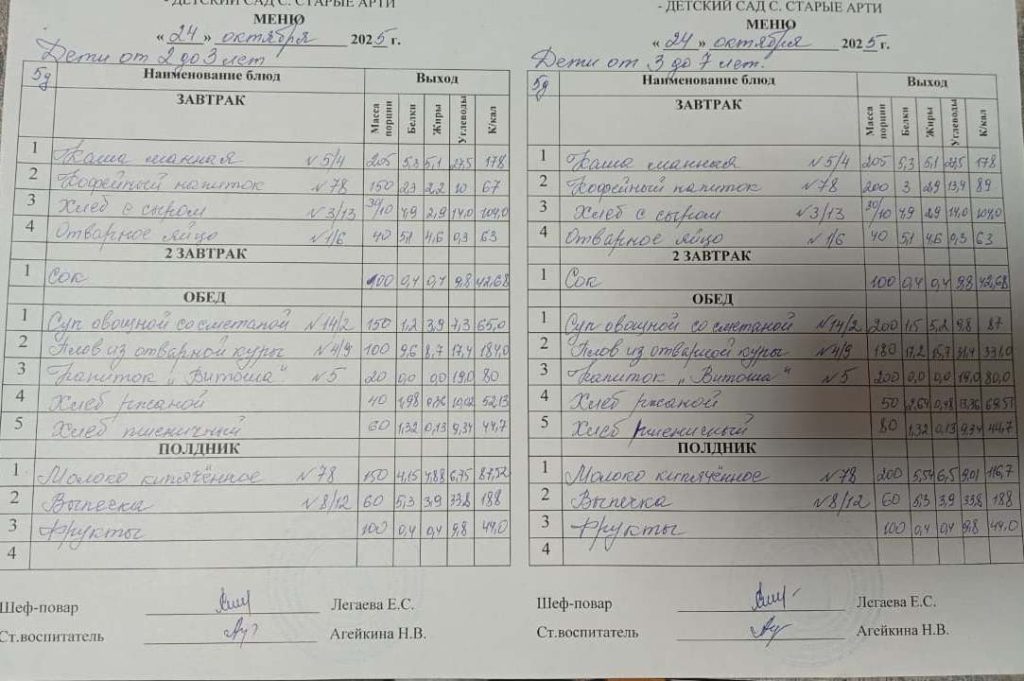 - ДЕТСКИЙ САД С. СТАРЫЕ АРТИ
МЕНЮ
« 24 » октября 2025 г.
Дети от 2 до 3 лет
5д Наименование блюд Выход
ЗАВТРАК Масса порции Белки Жиры Углеводы К/кал
1 Каша манная №5/4 205 5,3 5,1 27,5 178
2 Кофейный напиток №78 150 2,3 2,2 10 67
3 Хлеб с сыром №3/13 30/10 4,9 2,9 14,0 104,0
4 Отварное яйцо №1/6 40 5,1 4,6 0,3 63
2 ЗАВТРАК
1 Сок 100 0,4 0,4 9,8 42,68
ОБЕД
1 Суп овощной со сметаной №14/2 150 1,2 3,9 7,3 65,0
2 Плов из отварной куры №4/9 100 9,6 8,7 17,4 184,0
3 Напиток „Витоша" №5 20 0,0 0,0 19,0 80
4 Хлеб ржаной 40 1,98 0,36 10,02 52,13
5 Хлеб пшеничный 60 1,32 0,13 9,34 44,7
ПОЛДНИК
1 Молоко кипячённое №78 150 4,15 4,88 6,75 87,52
2 Выпечка №8/12 60 5,3 3,9 33,8 188
3 Фрукты 100 0,4 0,4 9,8 44,0
4
Шеф-повар Легаева Е.С.
Ст.воспитатель Агейкина Н.В.
- ДЕТСКИЙ САД С. СТАРЫЕ АРТИ
МЕНЮ
« 24 » октября 2025 г.
Дети от 3 до 7 лет.
5д Наименование блюд Выход
ЗАВТРАК Масса порции Белки Жиры Углеводы К/кал
1 Каша манная №5/4 205 5,3 5,1 27,5 178
2 Кофейный напиток №78 200 3 2,9 13,4 89
3 Хлеб с сыром №3/13 30/10 4,9 2,9 14,0 104,0
4 Отварное яйцо №1/6 40 5,1 4,6 0,3 63
2 ЗАВТРАК
1 Сок 100 0,4 0,4 9,8 42,68
ОБЕД
1 Суп овощной со сметаной №14/2 200 1,5 5,2 9,8 87
2 Плов из отварной куры №4/9 180 17,2 15,7 31,4 331,0
3 Напиток „Витоша" №5 200 0,0 0,0 19,0 80,0
4 Хлеб ржаной 50 2,64 0,48 13,36 69,51
5 Хлеб пшеничный 80 1,32 0,13 9,34 44,7
ПОЛДНИК
1 Молоко кипячённое №78 200 5,54 6,5 9,01 116,7
2 Выпечка №8/12 60 5,3 3,9 33,8 188
3 Фрукты 100 0,4 0,4 9,8 44,0
4
Шеф-повар Легаева Е.С.
Ст.воспитатель Агейкина Н.В.